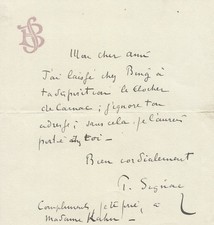 Mon cher ami
J'ai laissé chez Bing à
ta disposition le clocher
de Carnac; j'ignore ton
adresse; sans cela je l'aurais
porté chez toi —
Bien cordialement
P. Signac
Compliments, je te prie, à
Madame Kahn —